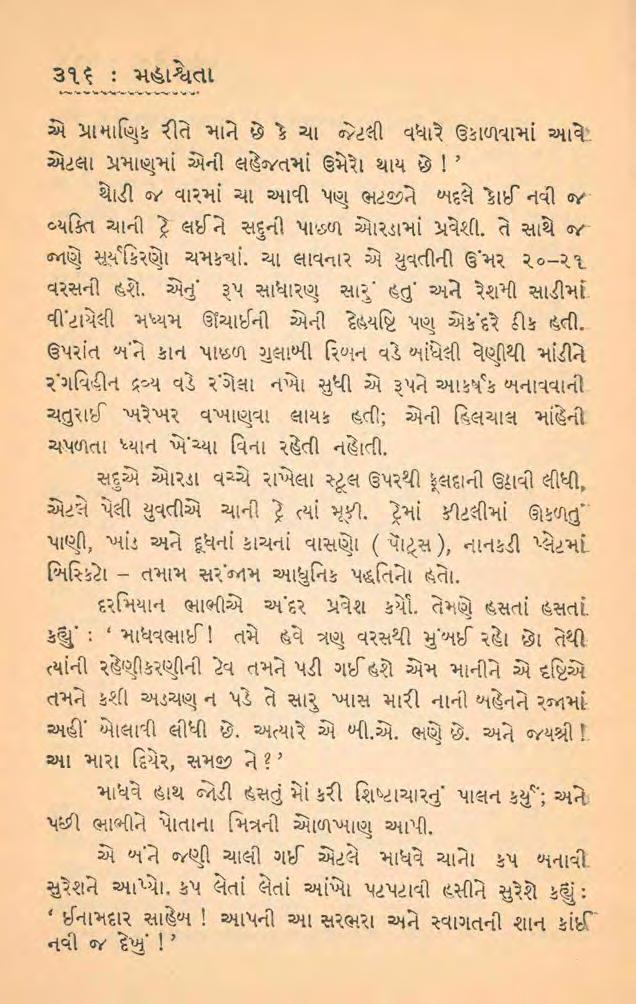 ૩૧૬ : મહાશ્વેતા
એ પ્રામાણિક રીતે માને છે કે ચા જેટલી વધારે ઉકાળવામાં આવે
એટલા પ્રમાણમાં એની લહેજતમાં ઉમેરો થાય છે ! ’
થોડી જ વારમાં ચા આવી પણ ભટજીને બદલે કોઈ નવી જ
વ્યક્તિ ચાની ટ્રે લઈને સદુની પાછળ ઓરડામાં પ્રવેશી. તે સાથે જ
જાણે સૂર્યકિરણો ચમક્યાં. ચા લાવનાર એ યુવતીની ઉંમર ૨૦–૨૧
વરસની હશે. એનું રૂપ સાધારણ સારું હતું અને રેશમી સાડીમાં
વીંટાયેલી મધ્યમ ઊંચાઈની એની દેહયષ્ટિ પણ એકંદરે ઠીક હતી.
ઉપરાંત બંને કાન પાછળ ગુલાબી રિબન વડે બાંધેલી વેણીથી માંડીને
રંગવિહીન દ્રવ્ય વડે રંગેલા નખો સુધી એ રૂપને આકર્ષક બનાવવાની
ચતુરાઈ ખરેખર વખાણવા લાયક હતી; એની હિલચાલ માંહેની
ચપળતા ધ્યાન ખેંચ્યા વિના રહેતી નહોતી.
સદુએ ઓરડા વચ્ચે રાખેલા સ્ટૂલ ઉપરથી ફૂલદાની ઉઠાવી લીધી,
એટલે પેલી યુવતીએ ચાની ટ્રે ત્યાં મૂકી. ટ્રેમાં કીટલીમાં ઊકળતું
પાણી, ખાંડ અને દૂધનાં કાચનાં વાસણો ( પૉટ્સ ), નાનકડી પ્લેટમાં
બિસ્કિટો – તમામ સરંજામ આધુનિક પદ્ધતિનો હતો.
દરમિયાન ભાભીએ અંદર પ્રવેશ કર્યો. તેમણે હસતાં હસતાં
કહ્યું : ‘ માધવભાઈ ! તમે હવે ત્રણ વરસથી મુંબઈ રહો છો તેથી
ત્યાંની રહેણીકરણીની ટેવ તમને પડી ગઈ હશે એમ માનીને એ દૃષ્ટિએ
તમને કશી અડચણ ન પડે તે સારુ ખાસ મારી નાની બહેનને રજામાં
અહીં બોલાવી લીધી છે. અત્યારે એ બી.એ. ભણે છે. અને જયશ્રી !
આ મારા દિયેર, સમજી ને ? ’
માધવે હાથ જોડી હસતું મોં કરી શિષ્ટાચારનું પાલન કર્યું; અને
પછી ભાભીને પોતાના મિત્રની ઓળખાણ આપી.
એ બંને જણી ચાલી ગઈ એટલે માધવે ચાનો કપ બનાવી
સુરેશને આપ્યો. કપ લેતાં લેતાં આંખો પટપટાવી હસીને સુરેશે કહ્યું :
‘ ઈનામદાર સાહેબ ! આપની આ સરભરા અને સ્વાગતની શાન કાંઈ
નવી જ દેખું ! ’